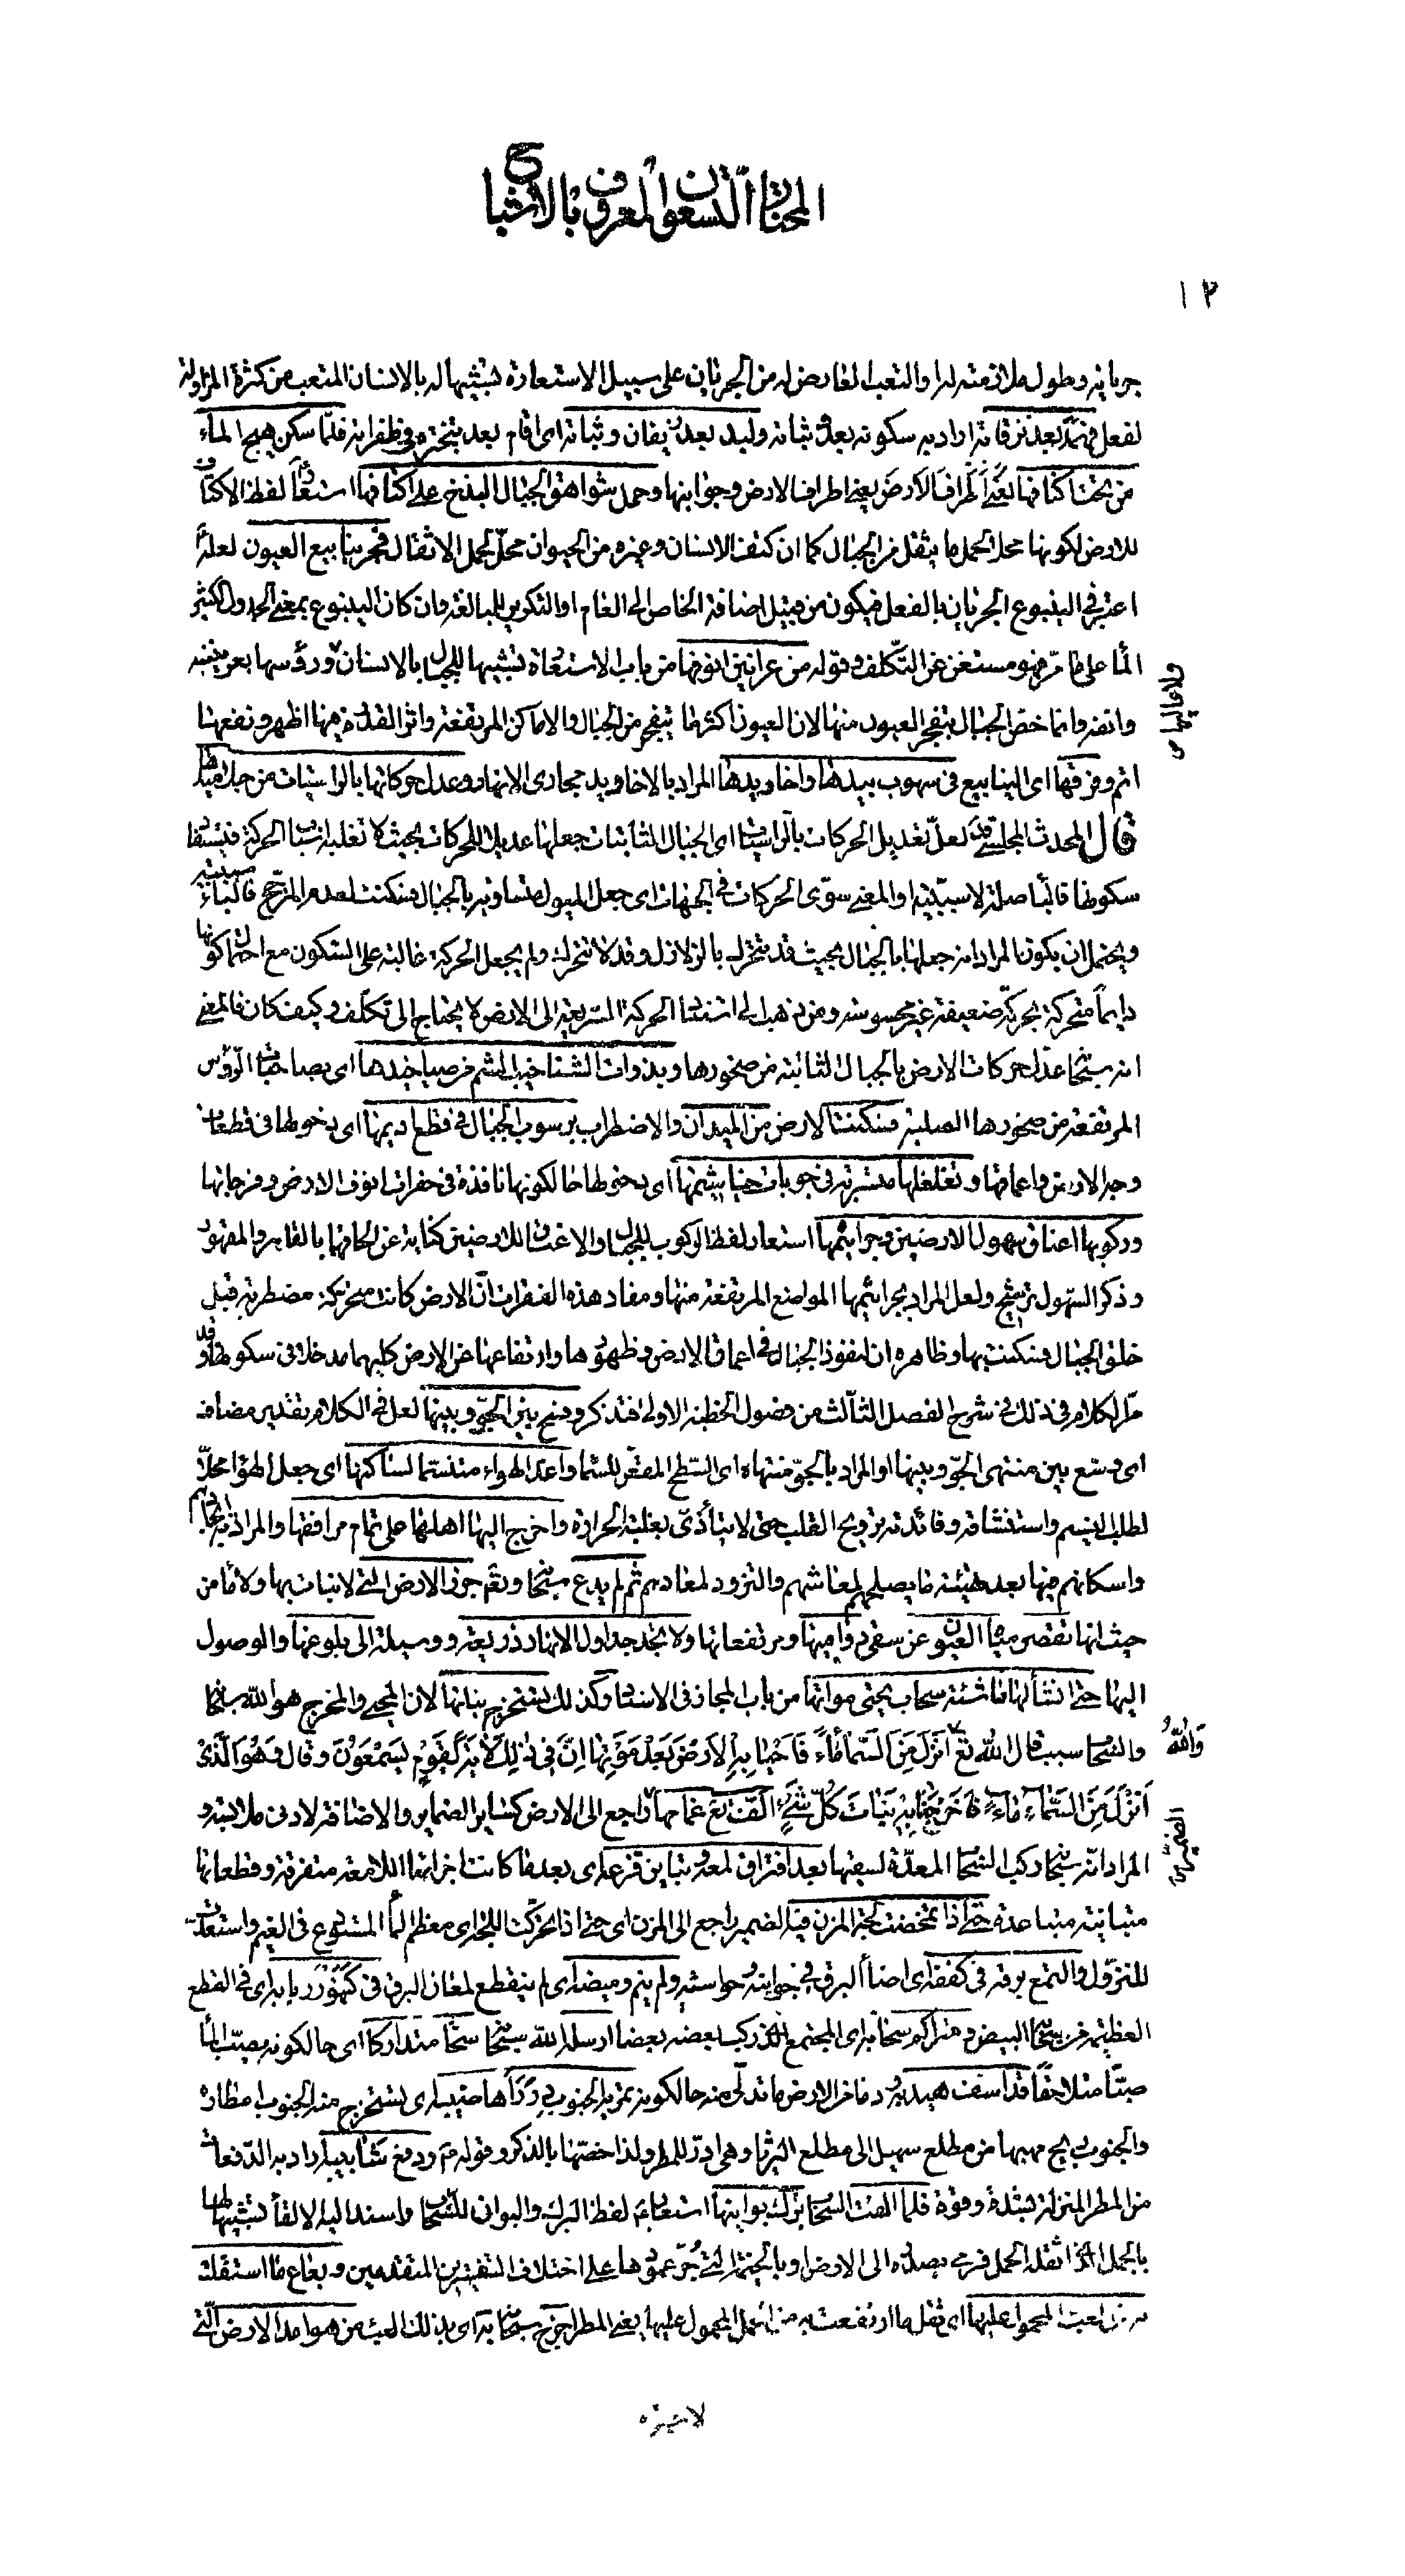 المختار التسعون المعروف بالاشباح
١٢
جريانه وطول ملازمته لها والتعب العارض له من الجريان على سبيل الاستعارة تشبيها له بالانسان المتعب من كثرة المزاولة
لفعل فهمد بعد نزقاته اراد به سكونه بعد وثباته ولبد بعد زيفان وثباته اى اقام بعد تبختره فى ظفراته فلما سكن هيج الماء
من تحت اكنافها يعنى اطراف الارض يعنى اطراف الارض وجوانبها وحمل شواهق الجبال البذخ على اكنافها استعار لفظ الاكتاف
للارض لكونها محلا لحمل ما يثقل من الجبال كما ان كتف الانسان وغيره من الحيوان محل لحمل الاثقال فجر ينابيع العيون لعله
اعتبر فى الينبوع الجريان بالفعل فيكون من قبيل اضافة الخاص الى العام او التكرير للمبالغة وان كان الينبوع بمعنى الجدول الكثير
الماء على ما مر فهو مستغن عن التكلف وقوله من عرانين انوفها من باب الاستعارة تشبيها للجبال بالانسان ورؤسها بعرنينه
وانفه وانما خص الجبال بتفجر العيون منها لان العيون اكثر ما يتفجر من الجبال والاماكن المرتفعة واثر القدرة فيها اظهر ونفعها
اتم وفرقها اى الينابيع فى سهوب بيدها واخاديدها المراد بالاخاديد مجارى الانهار وعدل حركاتها بالراسيات من جلاميدها
قال المحدث المجلسى قده لعل تعديل الحركات بالراسيات اى الجبال الثابتات جعلها عديلا للحركات بحيث لا تغلبه اسباب الحركة فيستفاد
سكونها فالباء صلة لا سببية او المعنى سوى الحركات فى الجهات اى جعل الميول متساوية بالجبال فسكنت لعدم المرجح فالباء سببية
ويحتمل ان يكون المراد انه جعلها بالجبال بحيث قد تتحرك بالزلازل وقد لا تتحرك ولم يجعل الحركة غالبة على السكون مع احتمال كونها
دايما متحركة بحركة ضعيفة غير محسوسة ومن ذهب الى استناد الحركة السريعة الى الارض لا يحتاج الى تكلف وكيف كان فالمعنى
انه سبحانه عدل حركات الارض بالجبال الثابتة من صخورها وبذوات الشناخيب الشم من صياخيدها اى بصاحبات الرؤس
المرتفعة من صخورها الصلبة فسكنت الارض من الميدان والاضطراب برسوب الجبال فى قطع اديمها اى دخولها فى قطعات
وجه الارض واعماقها وتغلغلها متسربة فى جوبات خياشيمها اى دخولها حالكونها نافذة فى حفرات انوف الارض وفرجاتها
وركوبها اعناق سهول الارضين وجراثيمها استعار لفظ الركوب للجبال والاعناق للارضين كناية عن الحاقها بالقاهر والمقهور
وذكر السهول ترشيح ولعل المراد بجراثيمها المواضع المرتفعة منها ومفاد هذه الفقرات ان الارض كانت متحركة مضطربة قبل
خلق الجبال فسكنت بها وظاهره ان لنفوذ الجبال فى اعماق الارض وظهورها وارتفاعها عن الارض كليهما مدخلا فى سكونها وقد
مر الكلام فى ذلك فى شرح الفصل الثالث من فصول الخطبة الاولى فتذكر وفسح بين الجو وبينها لعل فى الكلام تقدير مضاف
اى وسع بين منتهى الجو وبينها او المراد بالجو منتهاه اى السطح المقعر للسماء واعد الهواء متنسما لساكنها اى جعل الهواء محلا
لطلب النسيم واستنشاقه وفائدته ترويح القلب حتى لا يتأذى بغلبة الحرارة واخرج اليها اهلها على تمام مرافقها والمراد به ايجادهم
واسكانهم فيها بعد تهيئة ما يصلحهم لمعاشهم والتزود لمعادهم ثم لم يدع سبحانه وتعم جرز الارض التى لا نبات بها ولا ماء من
حيث انها تقصر مياه العيون عن سقى روابيها ومرتفعاتها ولا تجد جداول الانهار ذريعة ووسيلة الى بلوغها والوصول
اليها حتى انشأ لها ناشئة سحاب يحيى مواتها من باب المجاز فى الاسناد وكذلك يستخرج نباتها لان المحيى والمخرج هو الله سبحانه
والسحاب سبب قال الله تع وَاللهُ اَنْزَلَ مِنَ السَّمآءِ مآءً فَاَحْيا بِهِ الْاَرْضَ بَعْدَ مَوْتِها اِنَّ فى ذلِكَ لَآيَةً لِقَوْمٍ يَسْمَعُونَ وقال وَهُوَ الَّذى
اَنْزَلَ مِنَ السَّمآءِ مآءً فَاَخْرَجْنا بِهِ نَباتَ كُلِّ شَىْءٍ الف غمامها الضمير راجع الى الارض كساير الضماير والاضافة لادنى ملابسة و
المراد انه سبحانه ركب السحاب المعدة لسقيها بعد افتراق لمعه وتباين قزعه اى بعد ما كانت اجزائها اللامعة متفرقة وقطعاتها
متباينة متباعدة حتى اذا تمخضت لجة المزن فيه الضمير راجع الى المزن اى حتى اذا تحركت اللجة اى معظم الماء المستودع فى الغيم واستعدت
للنزول والتمع برقه فى كففه اى اضاء البرق فى جوانبه وحواشيه ولم ينم وميضه اى لم ينقطع لمعان البرق فى كنهور ربابه اى فى القطع
العظيمة من سحابه البيض ومتراكم سحابه اى المجتمع الذى ركب بعضه بعضا ارسله الله سبحانه سحا متداركا اى حالكونه يصب الماء
صبا متلاحقا قد اسف هيدبه ودنا من الارض ما تدلى منه حالكونه تمريه الجنوب درر اهاضيبه اى تستخرج منه الجنوب امطاره
والجنوب ريح مهبها من مطلع سهيل الى مطلع الثريا وهى ادر للمطر ولذا خصها بالذكر وقوله ع ودفع شآبيبه اراد به الدفعات
من المطر المنزلة بشدة وقوة فلما القت السحاب برك بوانيها استعار لفظ البرك والبوانى للسحاب واسند اليه الالقاء تشبيها لها
بالجمل الذى اثقله الحمل فرمى بصدره الى الارض او بالخيمة التى جر عمودها على اختلاف التفسيرين المتقدمين وبعاع ما استقلت
به من العبء المحمول عليها اى ثقل ما ارتفعت به من الحمل المحمول عليها يعنى المطر اخرج سبحانه به اى بذلك العبء من هوامد الارض التى